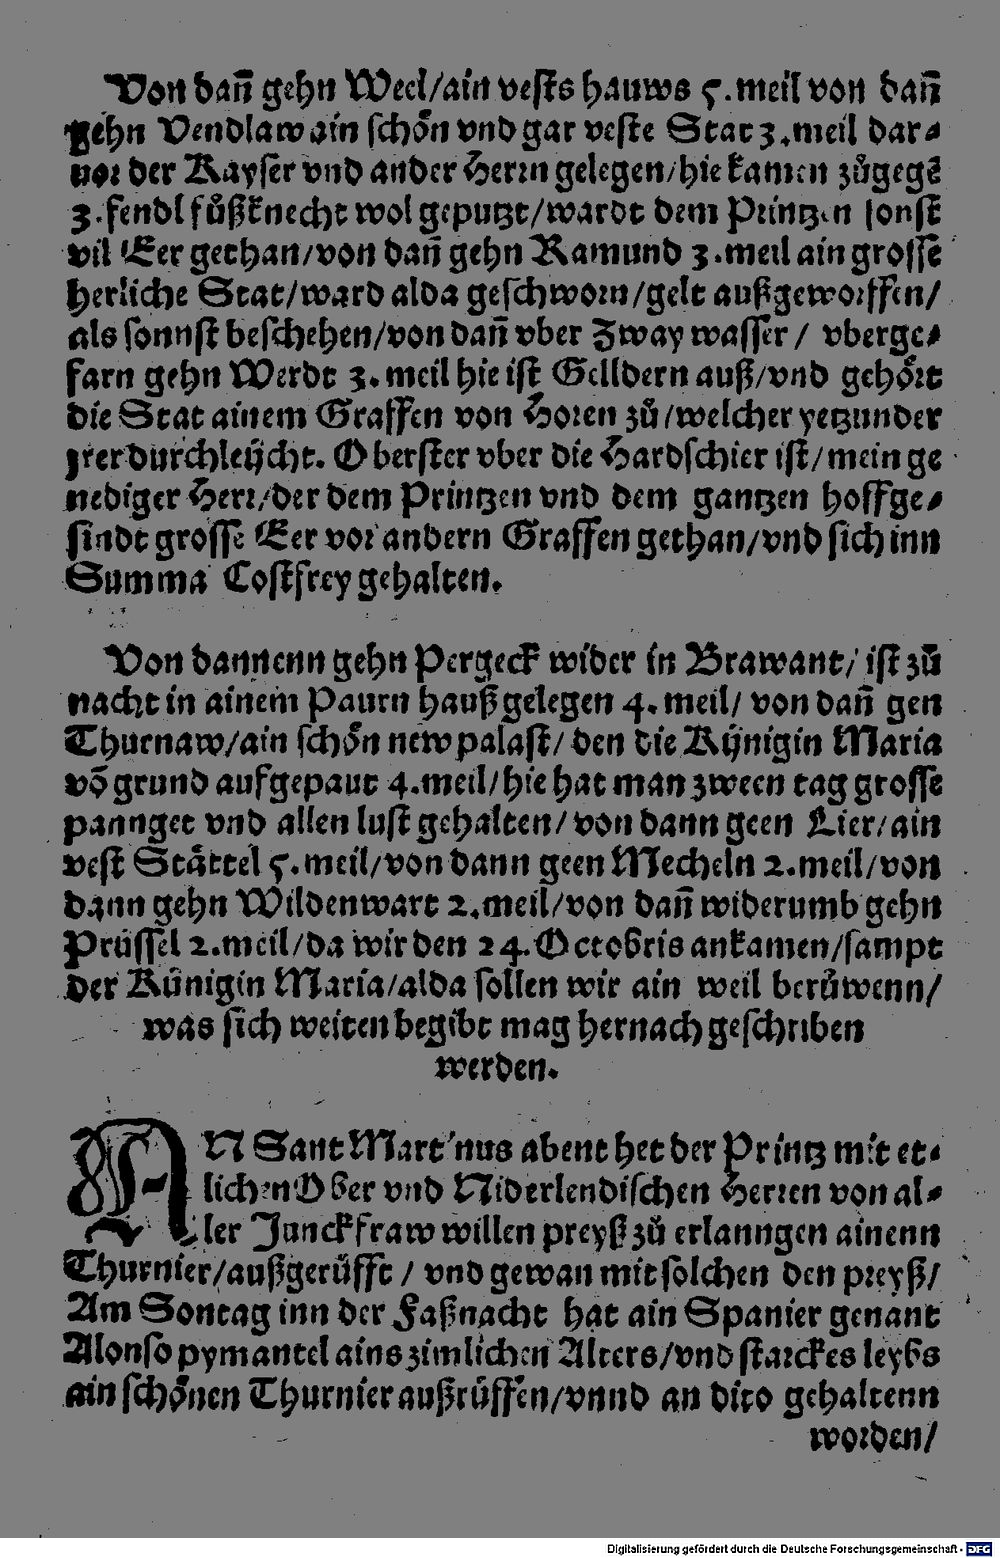 Von dañ gehn Wecl/ain vests hauws 5.meil von dañ
gehn Vendlaw ain schön vnd gar veste Stat 3.meil dar⸗
uor der Kayser vnd ander Herrn gelegen/hie kamen zůgegẽ
3.fendl fůßknecht wol geputzt/wardt dem Printzen sonst
vil Eer gethan/von dañ gehn Ramund 3.meil ain grosse
herliche Stat/ward alda geschworn/gelt außgeworffen/
als sonnst beschehen/von dañ vber Zway wasser / vberge⸗
farn gehn Werdt 3.meil hie ist Gelldern auß/vnd gehört
die Stat ainem Graffen von Horen zů/welcher yetzunder
jrer durchleÿcht. Oberster vber die Hardschier ist/mein ge
nediger Herr/der dem Printzen vnd dem gantzen hoffge⸗
sindt grosse Eer vor andern Graffen gethan/vnd sich inn
Summa Costfrey gehalten.
Von dannenn gehn Pergeck wider in Brawant/ist zů
nacht in ainem Paurn hauß gelegen 4.meil/von dañ gen
Thurnaw/ain schön new palast/den die Kÿnigin Maria
võ grund aufgepaut 4.meil/hie hat man zween tag grosse
pannget vnd allen lust gehalten/von dann geen Lier/ain
vest Stättel 5.meil/von dann geen Mecheln 2.meil/von
dann gehn Wildenwart 2.meil/von dañ widerumb gehn
Prüssel 2.meil/da wir den 24.Octobris ankamen/sampt
der Künigin Maria/alda sollen wir ain weil berůwenn/
was sich weiten begibt mag hernach geschriben
werden.
AN Sant Martinus abent het der Printz mit et⸗
lichen Ober vnd Niderlendischen Herren von al⸗
ler Junckfraw willen preyß zů erlanngen ainenn
Thurnier/außgerüfft / vnd gewan mit solchen den preyß/
Am Sontag inn der Faßnacht hat ain Spanier genant
Alonso pymantel ains zimlichen Alters/vnd starckes leybs
ain schönen Thurnier außrüffen/vnnd an dito gehaltenn
worden/
Digitalisierung gefördert durch die Deutsche Forschungsgemeinschaft - DFG